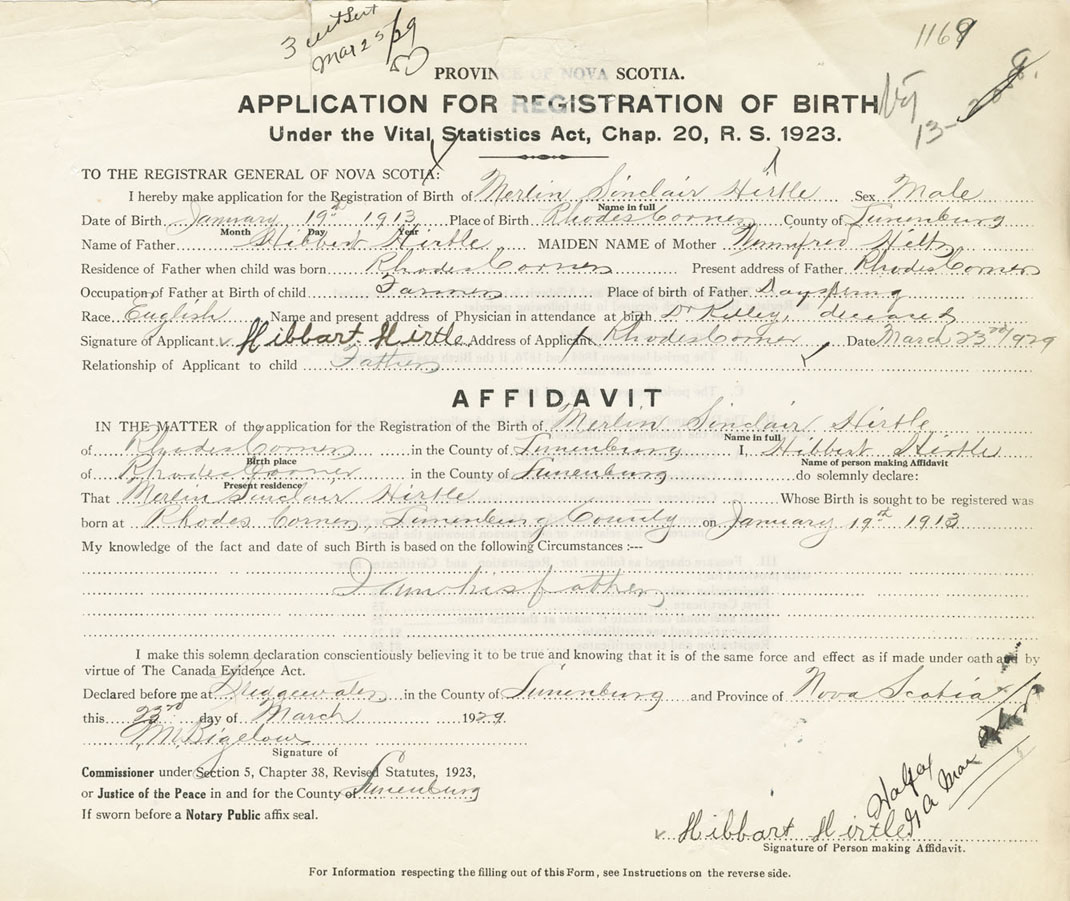 3 cert sent
Mar 25/29
1169
13-
PROVINCE OF NOVA SCOTIA.
APPLICATION FOR REGISTRATION OF BIRTH
Under the Vital Statistics Act, Chap. 20, R. S. 1923.
TO THE REGISTRAR GENERAL OF NOVA SCOTIA:
I hereby make application for the Registration of Birth of Merlin Sinclair Hirtle Sex Male
Name in full
Date of Birth January 19th 1913 Place of Birth Rhodes Corner County of Lunenburg
Month Day Year
Name of Father Hibbert Hirtle MAIDEN NAME of Mother Winnifred Hiltz
Residence of Father when child was born Rhodes Corner Present address of Father Rhodes Corner
Occupation of Father at Birth of child Farmer Place of birth of Father Dayspring
Race English Name and present address of Physician in attendance at birth Dr deceased
Signature of Applicant Hibbart Hirtle Address of Applicant Rhodes Corner Date March 23rd/929
Relationship of Applicant to child Father
AFFIDAVIT
IN THE MATTER of the application for the Registration of the Birth of Merlin Sinclair Hirtle
Name in full
of Rhodes Corner in the County of Lunenburg I, Hibbert Hirtle
Birth place Name of person making Affidavit
of Rhodes Corner in the County of Lunenburg do solemnly declare:
Present residence
That Merlin Sinclair Hirtle Whose Birth is sought to be registered was
born at Rhodes Corner, Lunenburg County on January 19th 1913
My knowledge of the fact and date of such Birth is based on the following Circumstances :---
I am his father
I make this solemn declaration conscientiously believing it to be true and knowing that it is of the same force and effect as if made under oath and by
virtue of The Canada Evidence Act.
Declared before me at Bridgewater in the County of Lunenburg and Province of Nova Scotia
this 23rd day of March 1929.
M Bigelow
Signature of
Commissioner under Section 5, Chapter 38, Revised Statutes, 1923,
or Justice of the Peace in and for the County of Lunenburg
If sworn before a Notary Public affix seal.
Halifax
Mar
Hibbart Hirtle
Signature of Person making Affidavit.
For Information respecting the filling out of this Form, see Instructions on the reverse side.